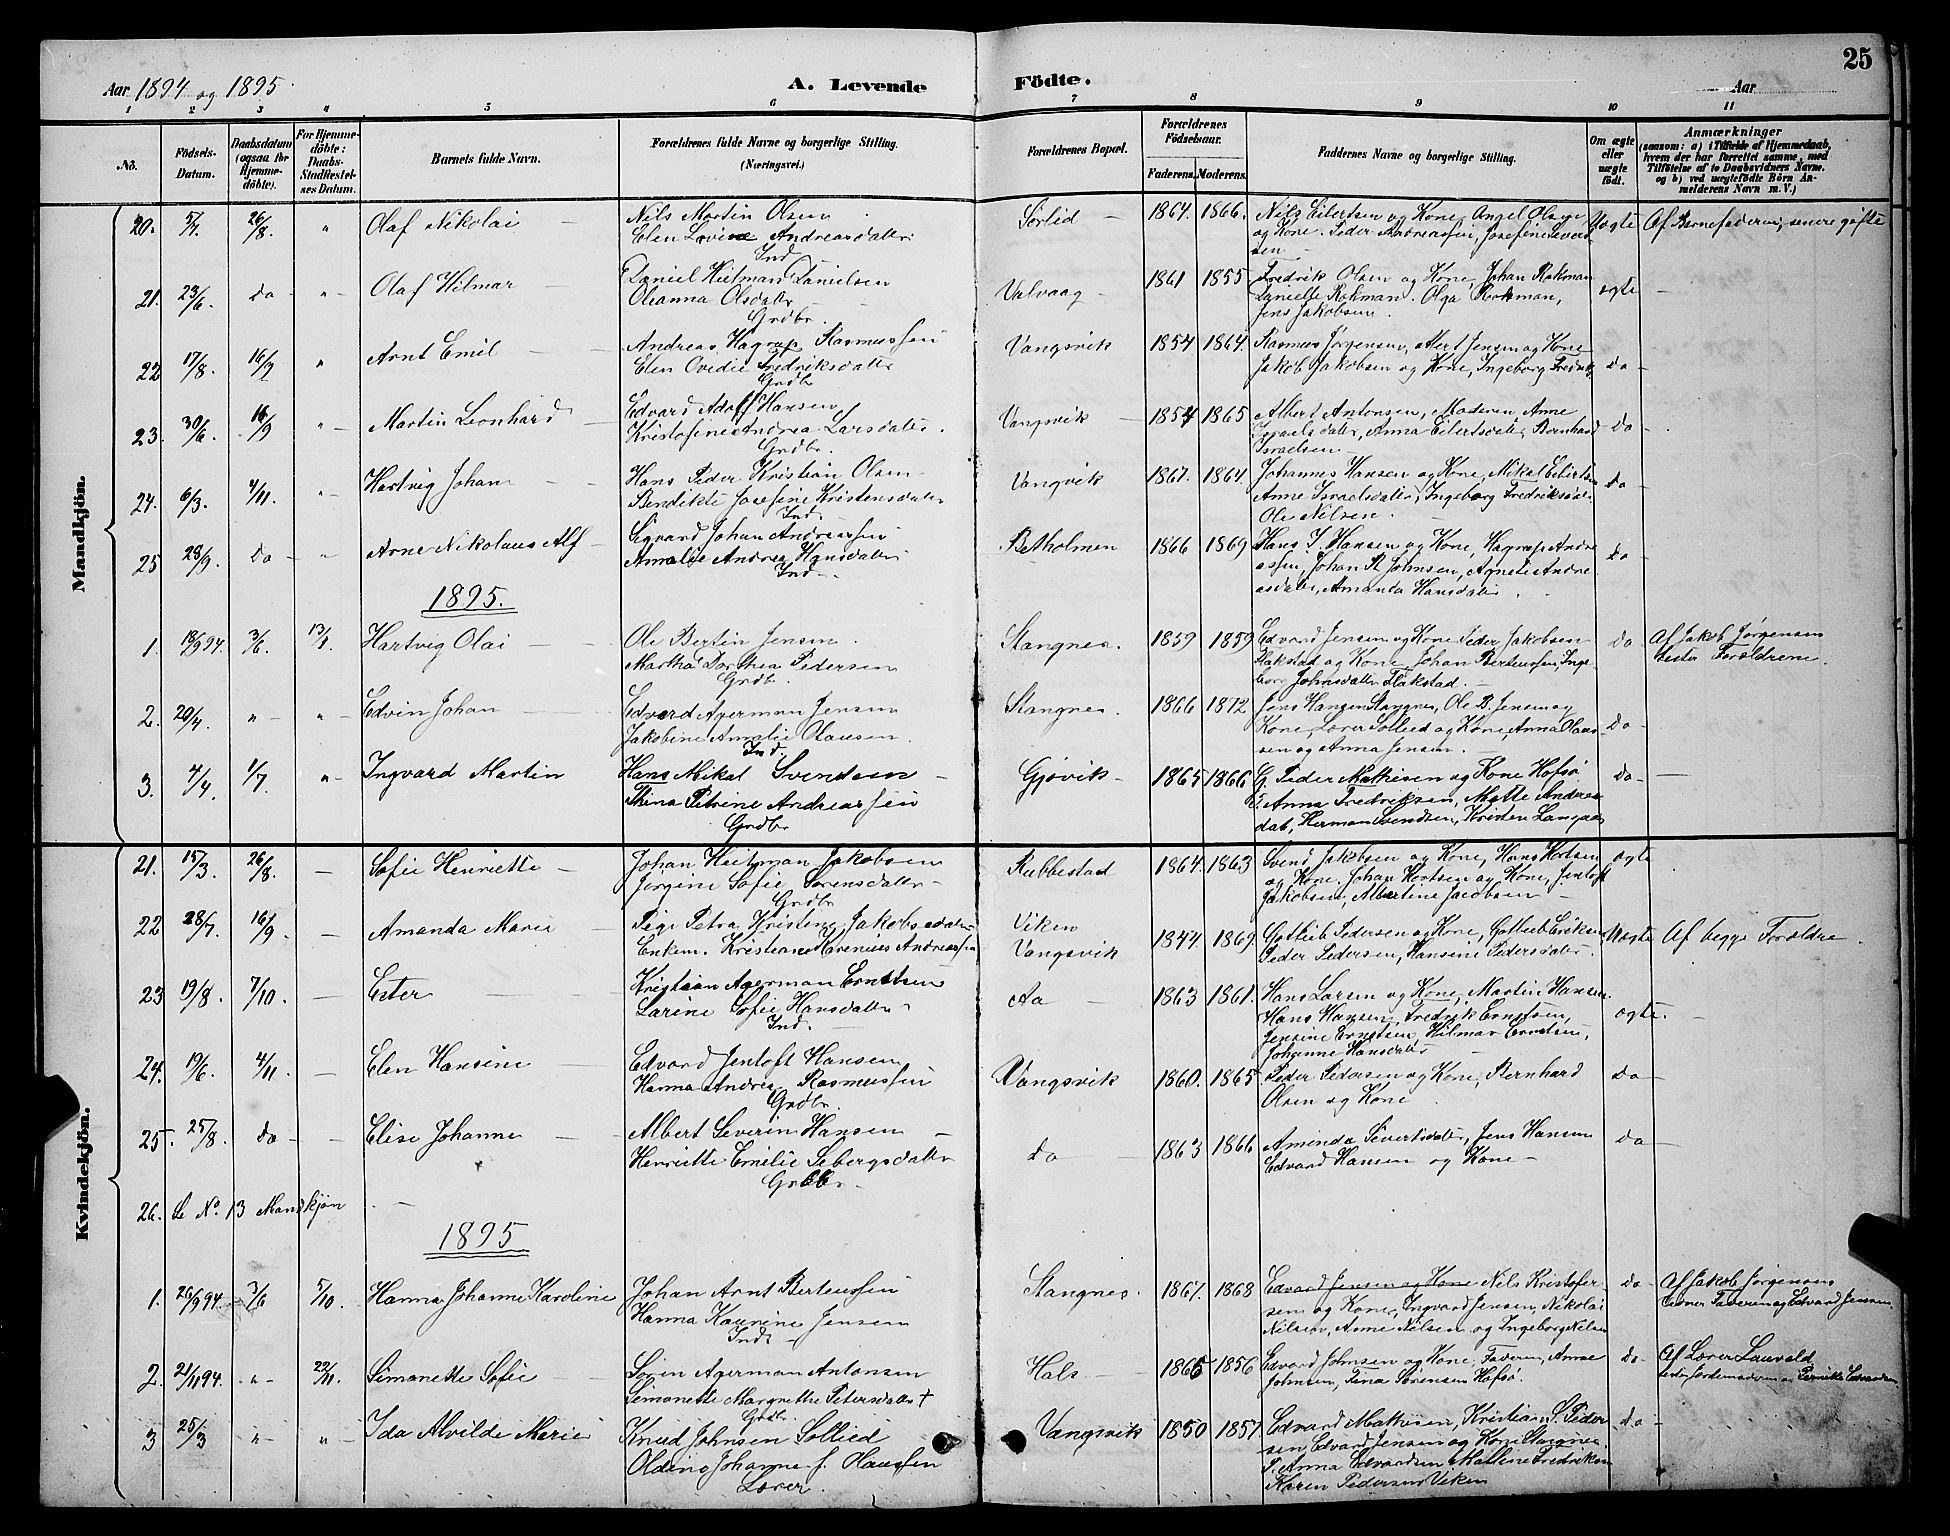 25
Aar 1894 og 1895. A. Levende Födte. Aar
1 2 3 4 5 6 7 8 9 10 11
No. Födsels-Datum. Daabsdatum (ogsaa for Hjemme-döbte). For Hjemme-döbte: Daabs-Stadfæstel-ses Datum. Barnets fulde Navn. Forældrenes fulde Navne og borgerlige Stilling. (Næringsvei.) Forældrenes Bopæl. Forældrenes Födselsaar. Faderens. Moderens. Faddernes Navne og borgerlige Stilling. Om ægte eller uægte födt. Anmærkninger (saasom: a) i Tilfælde af Hjemmedaab, hvem der har forrettet samme, med Tilföielse af to Daabsvidners Navne. og b) ved uægtefödte Börn An-melderens Navn m. V.)
Mandkjön.
20. 5/7. 26/8. " Olaf Nikolai Nils Martin Olsen Sørlid 1864. 1866. Nils Eilertsen og Kone, Angel Olsen Uægte Af Barnefaderen, senere gifte
Elen Lovise Andreasdatter og Kone. Peder Andreassen, Josefine Sivert
Ind. sen
21. 23/6. do " Olaf Hilmar Daniel Heitman Danielsen Valvaag 1861 1855 Fredrik Olsen og Kone, Johan Rokman ægte
Oleanna Olsdatter Danielle Rokman. Olga Rokman,
Grdbr. Jens Jakobsen.
22 17/8. 16/9 " Arnt Emil Andreas Hagrup Rasmussen Vangsvik 1854 1864. Rasmus Jørgensen, Albert Jensen og Kone do
Elen Ovidie Fredriksdatter Jakob Jakobsen og Kone, Ingeborg Fredrik
Grdbr
23. 30/6. 16/9 " Martin Leonhard Edvard Adolf Hansen Vangsvik 1854 1865 Albert Antonsen, Moderen, Anne do
Kristofine Andrea Larsdatter. Israelsdatter, Anna Eilertsdatter, Bernhard
Grdbr. Israelsen
24. 6/3. 4/11. " Hartvig Johan Hans Peder Kristian Olsen Vangvik 1867. 1864. Johannes Hansen og Kone, Mikal Eilertsen do
Bendikte Josefine Kristensdatter Anne Israelsdatter, Ingeborg Fredriksdat
Ind. Ole Nilsen.
25 28/9. do " Arne Nikolaus Alf Sigvard Johan Andreassen Betholmen 1866 1869 Hans J. Hansen og Kone, Hagrup Andre do
Amalie Andrea Hansdatter assen, Johan R. Johnsen, Agnete Andre
Ind asdatter, Amanda Hansdatter.
1895.
1. 18/9 94. 3/6. 13/1 Hartvig Olai Ole Bertin Jensen. Stangnes. 1859 1859 Edvard Jensen og Kone Peder Jakobsen do Af Jakob Jørgensen
Martha Dorthea Pedersen Flakstad og Kone, Johan Berteussen, Inge Tester Forældrene.
Grdbr. borg Johnsdatter Flakstad.
2. 20/4. " " Edvin Johan Edvard Agerman Jensen Stangnes. 1866 1872 Jens Hansen Stangnes, Ole B. Jensen og do
Jakobine Amalie Olausen. Kone, Lærer Sollied og Kone, Anna Olaus
Ind. sen og Anna Jensen.
3. 4/4. 1/7. " Ingvard Martin Hans Mikal Svendsen Gjøvik 1865 1866 G. Peder Mathisen og Kone Hofsø do
Thina Petrine Andreassen P. Anna Fredriksen, Mette Andrea
Grdbr dat, Herman Svendsen, Kristen Langaas
Kvindekjön.
21. 15/3. 26/8. Sofie Henriette Johan Heitman Jakobsen Rubbestad 1864. 1863 Svend Jakobsen og Kone, Hans Hortsen ægte
Jørgine Sofie Sørensdatter og Kone. Johan Hortsen og Kone, Jentoft
Grdbr Jakobsen, Albertine Jacobsen
22 28/7. 16/9. Amanda Marie Pige Petra Kristine Jakobsdatter Viken 1844 1869 Gotlieb Pedersen og Kone, Gotlieb Eriksen Uægte Af begge Forældre.
Enkem. Kristian Marenius Andreassen Vangsvik Peder Pedersen, Hansine Pedersdatter.
23 19/8. 7/10. Ester Kristian Agerman Ernstsen Aa 1863 1861. Hans Larsen og Kone, Martin Hansen ægte.
Larine Sofie Hansdatter Hans Hansen, Fredrik Ernstsen,
Ind. Jensine Ernstsen, Hilmar Ernstsen,
Johanne Hansdatter
24. 19/6. 4/11. Elen Hansine Edvard Jentoft Hansen Vangsvik 1860. 1865 Peder Pedersen og Kone, Bernhard do
Hanna Andrea Rasmussen Olsen og Kone
Grdbr.
25. 25/8. do Elise Johanne Albert Severin Hansen do 1863 1866 Aminda Sivertsdatter, Jens Hansen do
Henriette Emilie Sebergsdatter Edvard Hansen og Kone
Grdbr.
26. Se No. 13 Mandkjön
1895
1. 26/9 94. 3/6 5/10. Hanna Johanne Karoline Johan Arnt Berteussen Stangnes. 1867. 1868 Edvard Jensen og Kone Nils Kristofer do Af Jakob Jørgensen
Hanna Kaurine Jensen sen og Kone, Ingvard Jensen, Nikolai Faderen og Edvard Jensen
Ind. Nilsen, Anne Nilsen og Ingeborg Nilsen
2. 21/11 94. " 22/11. Simonette Sofie Søren Agerman Antonsen Hals 1865 1856 Edvard Johnsen og Kone, Faderen, Anne do Af Lærer Lauvald
Simonette Margrethe Petersdatter † Johnsen, Tina Sørensen Hofsø. Pernille Edvardsen
Grdbr.
3 25/3 " " Ida Alvilde Marie Knud Johnsen Sollied Vangsvik 1850 1857 Edvard Mathisen, Kristian S. Peder do
Oldine Johanne f. Olaussen sen Edvard Jensen og Kone Stangnes.
Lærer. P. Anna Edvardsen, Mathine Fredriksen
Karen Pedersen Viken